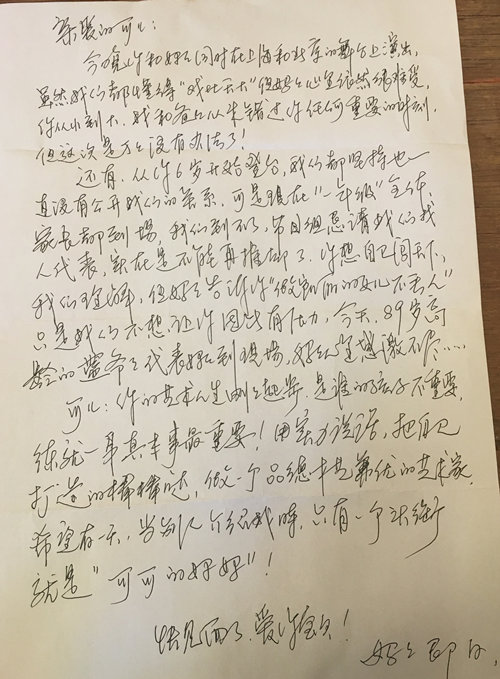 亲爱的可儿：
今晚你和妈妈同时在上海和北京的舞台上演出，
虽然我们都懂得"戏比天大"但妈妈心里依然很难受，
你从小到大，我和爸爸从未错过你任何重要的时刻，
但这次是万万没有办法了！
还有，从你6岁开始登台，我们都坚持也一
直没有公开我们的关系，可是现在"一年级"全体
家长都到场，我们到不了，节目组恳请我们找
人代表，实在是不能再推却了，你想自己闯天下，
我们理解，但妈妈告诉你"做 的女儿不丢人"
只是我们不想让你因此有压力，今天，89岁高
龄的蓝爷爷代表妈妈到现场，妈妈 感激不尽……
可儿：你的艺术人生刚刚起步，是谁的孩子不重要，
练就一身真本事最重要！用实力说话，把自己
打造的棒棒哒，做一个品德卡是第优的艺术家，
希望有一天，当别人介绍我时，只有一个头衔
就是"可可的妈妈"！
快见面了，爱你宝贝！
妈妈即日，